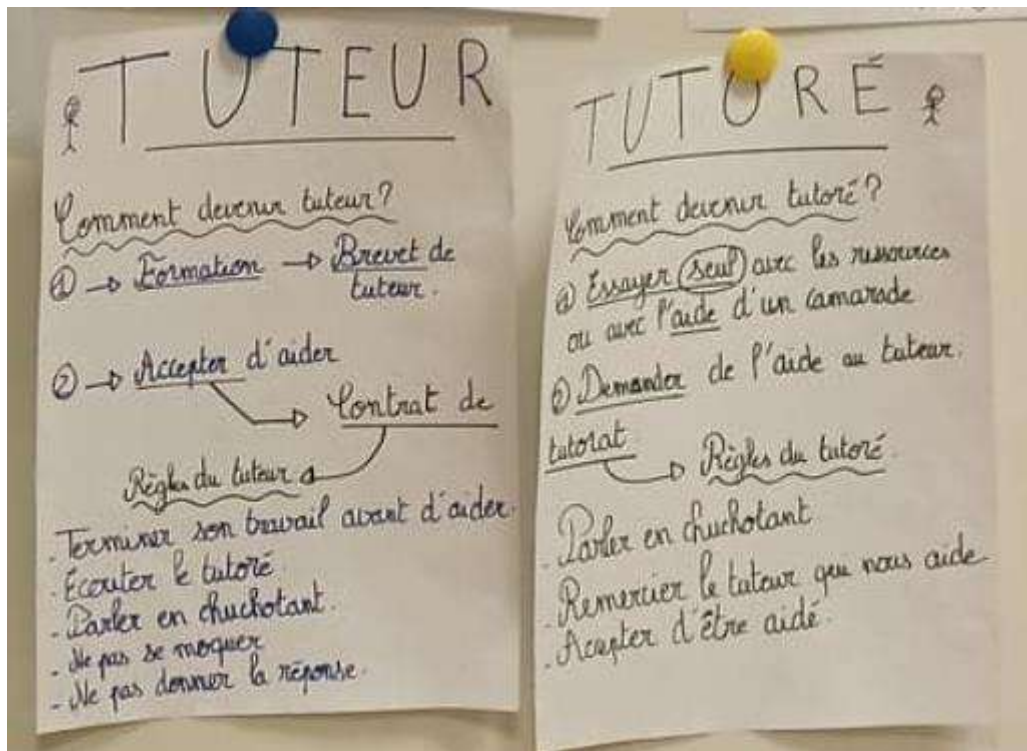 TUTEUR
Comment devenir tuteur?
① → Formation → Brevet de
tuteur.
② → Accepter d'aider
→ Contrat de
Règles du tuteur
- Terminer son travail avant d'aider.
- Écouter le tutoré
- Parler en chuchotant.
- Ne pas se moquer
- Ne pas donner la réponse.
TUTORÉ
Comment devenir tutoré?
① Essayer seul avec les ressources
ou avec l'aide d'un camarade
② Demander de l'aide au tuteur.
tutorat
→ Règles du tutoré.
- Parler en chuchotant
- Remercier le tuteur qui nous aide
- Accepter d'être aidé.